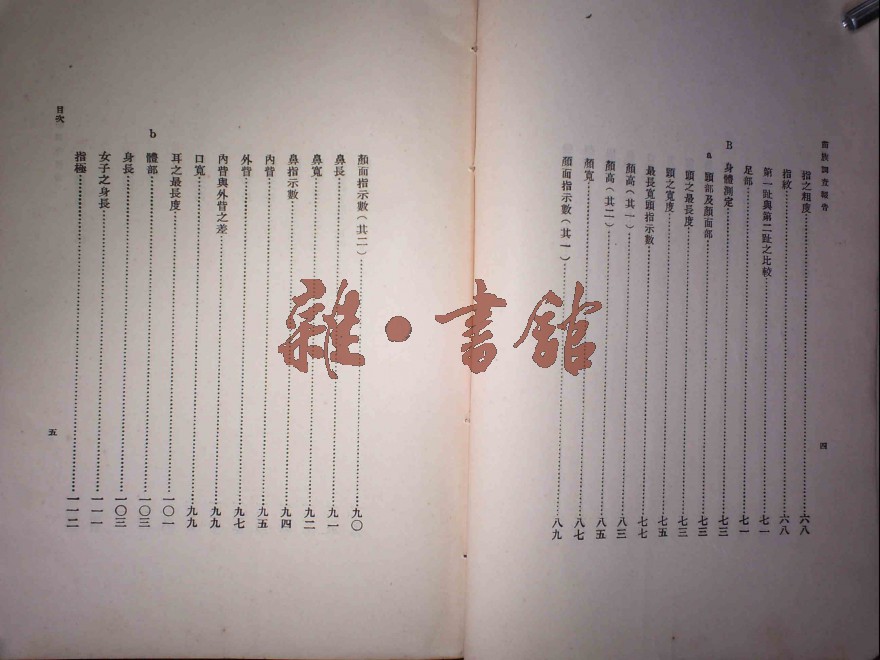 苗族調查報告
指之粗度……六八
指紋……六八
第一趾與第二趾之比較……七一
足部……七一
B 身體測定……七三
a 頭部及顏面部……七三
頭之最長度……七三
頭之寬度……七五
最長寬頭指示數……七七
顏高(其一)……八三
顏高(其二)……八五
顏寬……八七
顏面指示數(其一)……八九
四
顏面指示數(其二)……九〇
鼻長……九一
鼻寬……九二
鼻指示數……九四
內眥……九五
外眥……九七
內眥與外眥之差……九九
口寬……九九
耳之最長度……一〇一
b 體部……一〇三
身長……一〇三
女子之身長……一一一
指極……一一二
目次
五
雜·書館